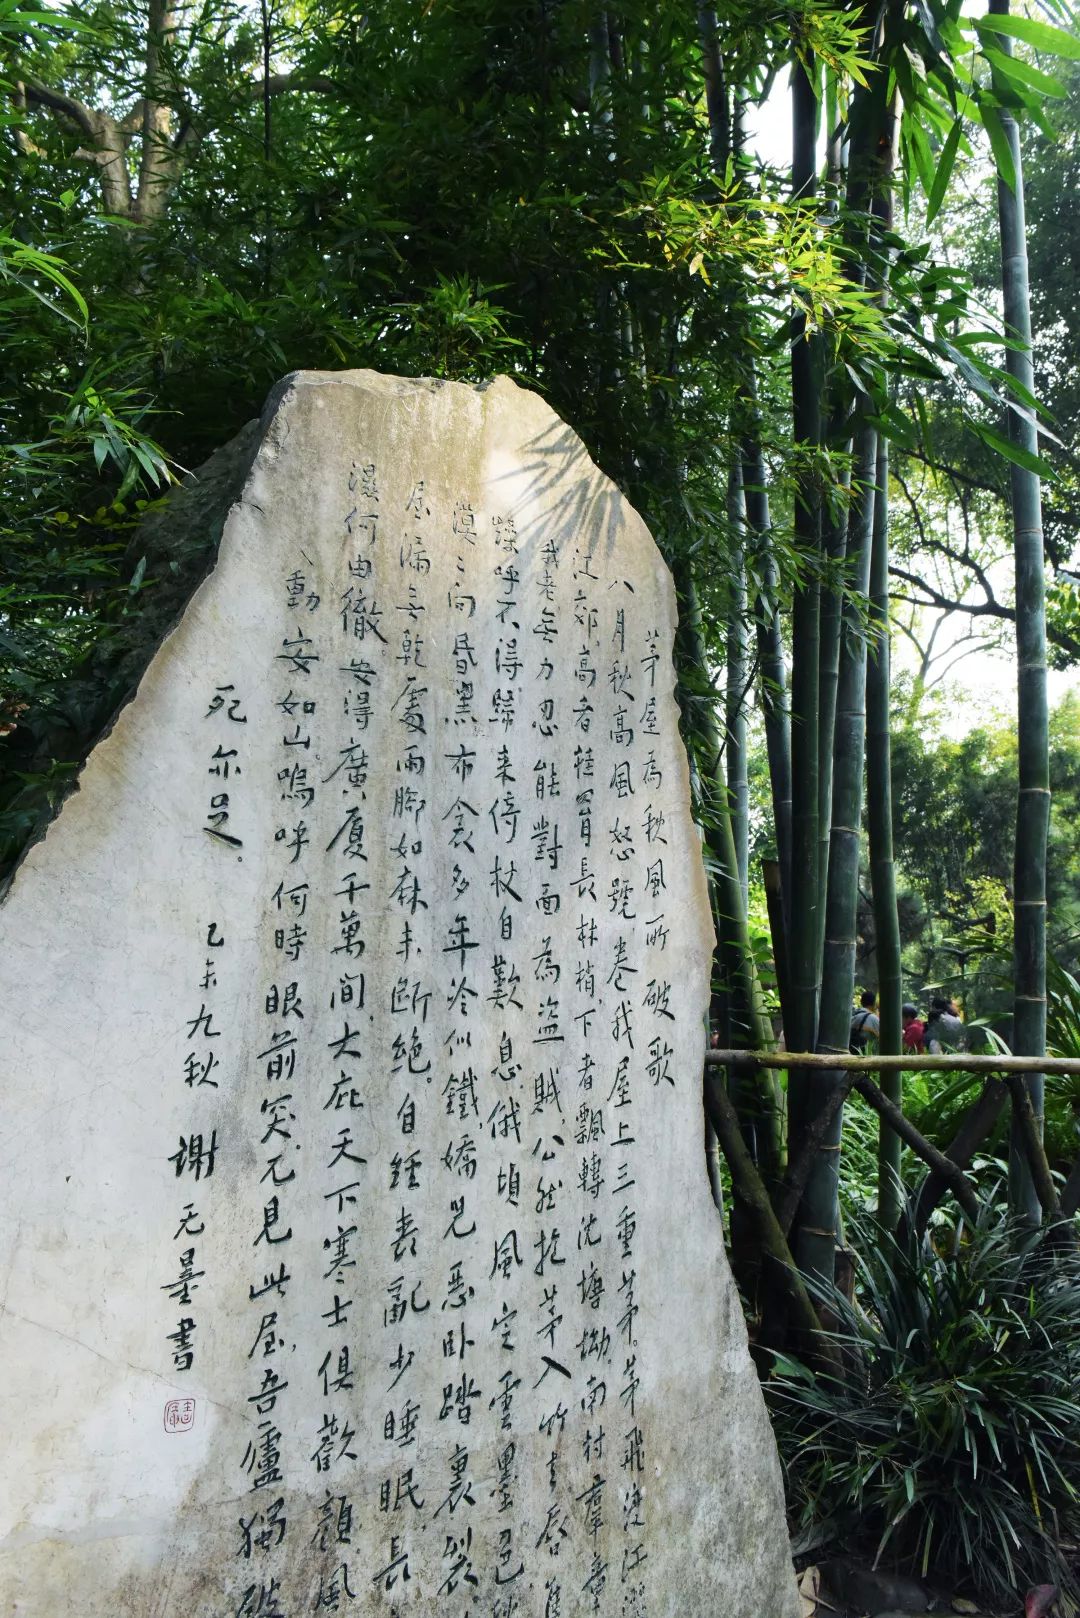 茅屋為秋風所破歌
八月秋高風怒號、卷我屋上三重茅。茅飛渡江灑
江郊、高者挂罥長林梢、下者飄轉沈塘坳、南村羣童
我老無力忍能對面為盜賊、公然抱茅入竹去唇焦
躁呼不得歸来倚杖自歎息、俄頃風定雲墨色、秋
漠〻向昏黑、布衾多年冷似鐵、嬌児惡卧踏裏裂、
屋漏无乾處雨脚如麻未斷絶。自經喪亂少睡眠、長
濕何由徹。安得廣廈千萬間、大庇天下寒士俱歡顏、風
動安如山。嗚呼何時眼前突兀見此屋、吾廬獨破
死亦足。
乙未九秋 谢无量書